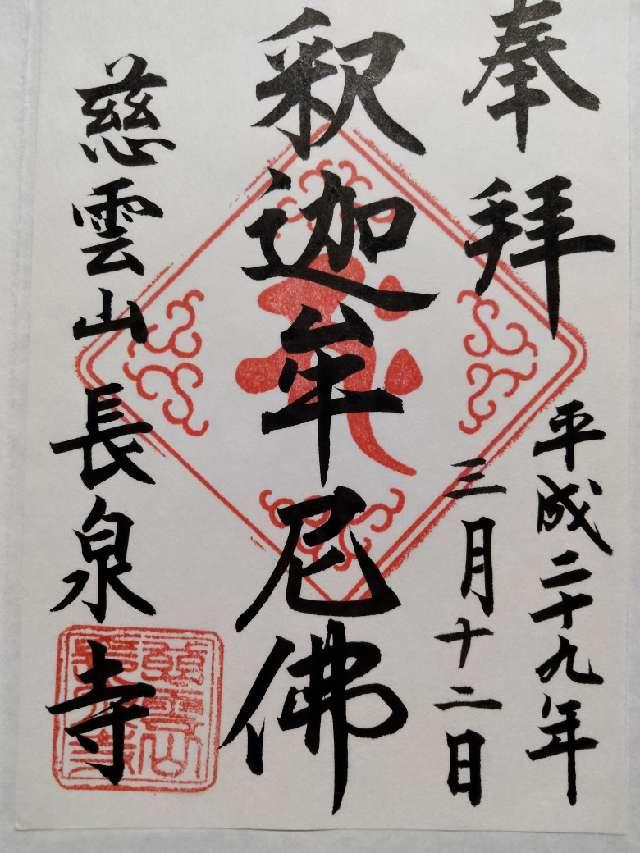 奉拜
平成二十九年
三月十二日
釈迦牟尼佛
慈雲山長泉寺